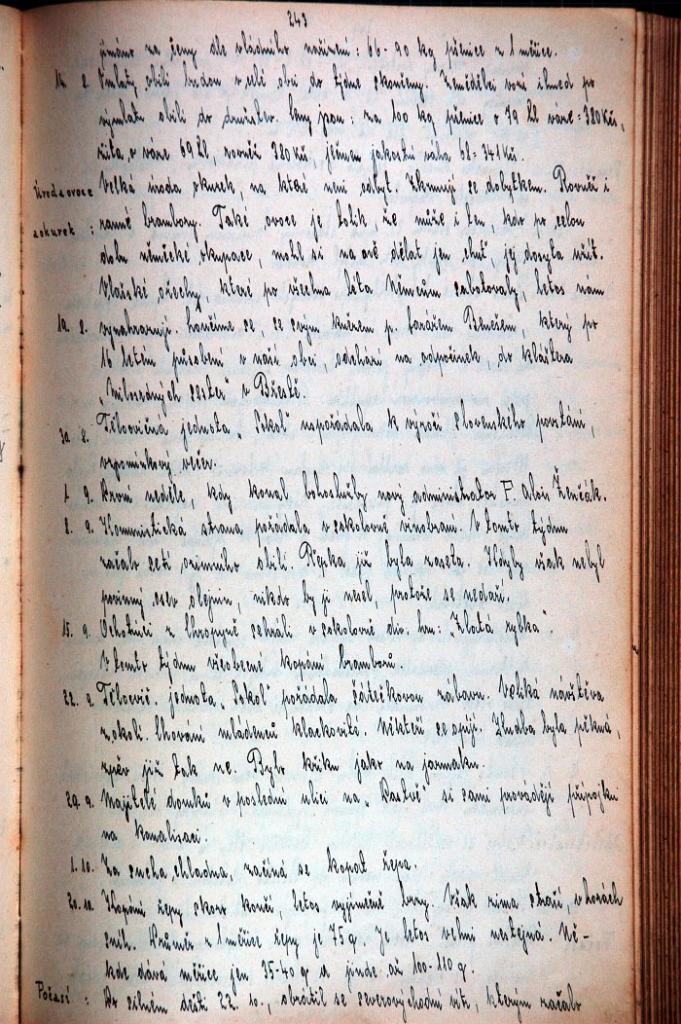 243
jináno za ženy dle vládního nařízení: 66-90 kg pšenice z 1 měřice.
14. 8. Výmlaty obilí budou v celé obci do týdne skončeny. Zemědělci vozí ihned po
výmlatu obilí do družstev. Ceny jsou: za 100 kg pšenice o 79 hl váze = 380 Kčs,
žita o váze 69 hl, rovněž 380 Kčs, ječmen jakostní váha 68 = 341 Kčs.
Úroda ovoce Velká úroda okurek, na které není odbyt. Zkrmují se dobytkem. Rovněž i
a okurek : ranné brambory. Také ovoce je tolik, že může i ten, kdo po celou
dobu německé okupace, mohl si na ově dělat jen chuť jej dosyta užít.
Vlašské ořechy, které po všechna léta Němcům sabotovaly, letos nám
19. 8. vynahrazují. Loučíme se, se svým knězem p. farářem Benešem, který po
16 letém působení v naší obci, odchází na odpočinek, do kláštera
"Milosrdných sester" v Břestě.
30. 8. Tělocvičná jednota "Sokol" uspořádala k výročí slovenského povstání,
vzpomínkový večer.
1. 9. První neděle, kdy konal bohoslužby nový administrátor P. Alois Ženčák.
8. 9. Komunistická strana pořádala v sokolovně vinobraní. V tomto týdnu
začalo setí ozimního obilí. Řepka již byla zaseta. Kdyby však nebyl
povinný osev olejnin, nikdo by ji nesel, protože se nedaří.
15. 9. Ochotníci z Chropyně sehráli v sokolovně div. hru: "Zlatá rybka".
V tomto týdnu všeobecné kopání bramborů.
22. 9. Tělocvič. jednota "Sokol" pořádala šátečkovou zábavu. Velká návštěva
z okolí. Chování mládenců klackovité. Někteří se opíjí. Hudba byla pěkná,
zpěv již tak ne. Bylo křiku jako na jarmaku.
29. 9. Majitelé domků v poslední ulici na "Rastvě" si sami provádějí přípojku
na kanalisaci.
1. 10. Za sucha chladna, začíná se kopat řepa.
20. 10. Kopání řepy skoro končí, letos vyjímečně brzy. Však zima straší, v horách
sníh. Průměr z 1 měřice řepy je 75 q. Je letos velmi nestejná. Ně-
kde dává měřice jen 35-40 q a jinde až 100-110 q.
Počasí : Po silném dešti 22. 10., obrátil se severovýchodní vítr, kterým začalo